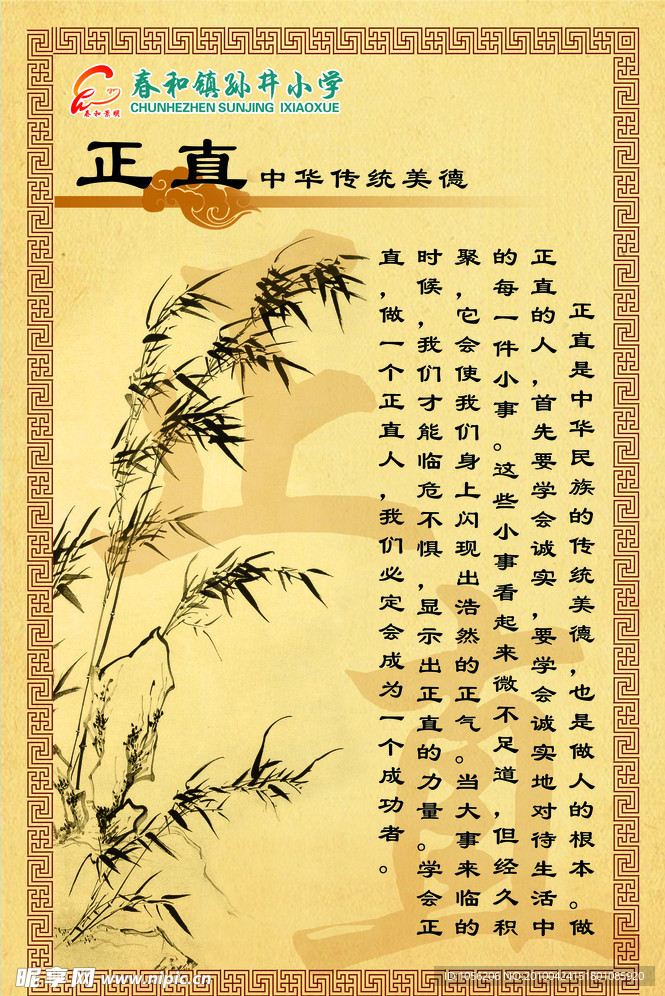 春和镇孙井小学
CHUNHEZHEN SUNJING IXIAOXUE
春和景明
正直 中华传统美德
正直
正直是中华民族的传统美德，也是做人的根本。做
正直的人，首先要学会诚实，要学会诚实地对待生活中
的每一件小事。这些小事看起来微不足道，但经久积
聚，它会使我们身上闪现出浩然的正气。当大事来临的
时候，我们才能临危不惧，显示出正直的力量。学会正
直，做一个正直人，我们必定会成为一个成功者。
昵享网 www.nipic.cn